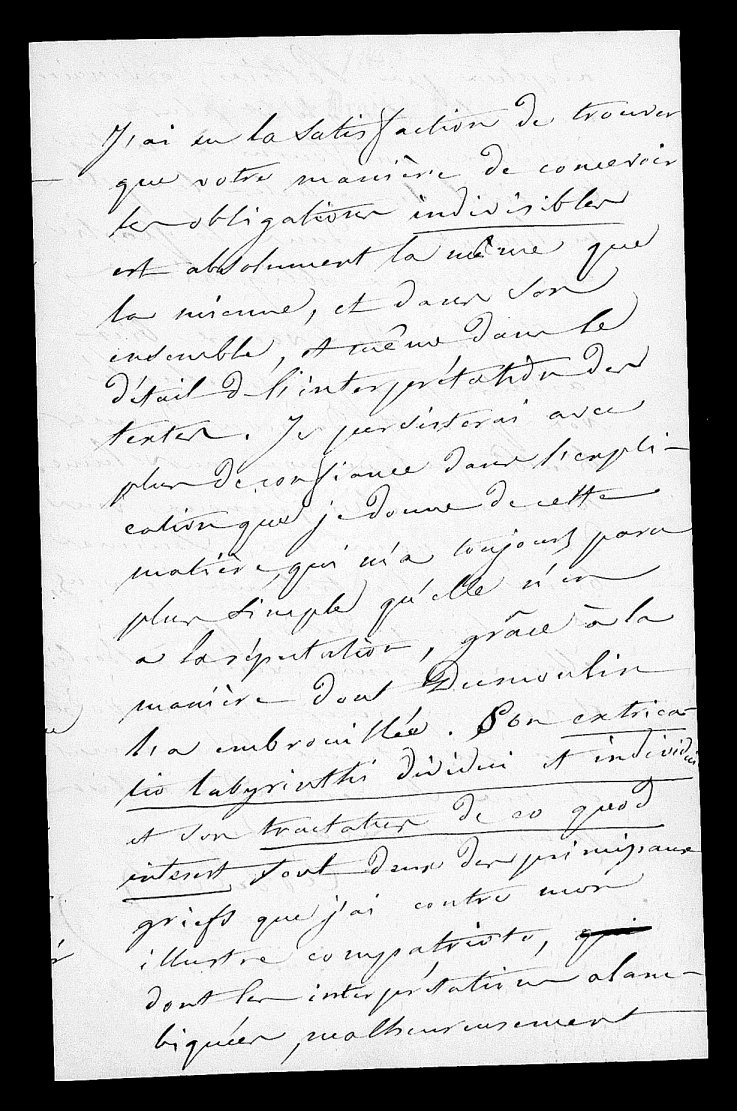 J'ai eu la satisfaction de trouver
que votre manière de concevoir
les obligations indivisibles
est absolument la même que
la mienne, et dans son
ensemble, et même dans le
détail de l'interprétation des
textes. Je persisterai avec
plus de confiance dans l'expli-
cation que je donne de cette
matière, qui m'a toujours paru
plus simple qu'elle n'en
a la réputation, grâce à la
manière dont Dumoulin
l'a embrouillée. Son extrica-
tio labyrinthi dividui et individui
et son tractatus de eo quod
interest sont deux des principaux
griefs que j'ai contre mon
illustre compatriote, qui
dont les interprétations alam-
biquées, malheureusement